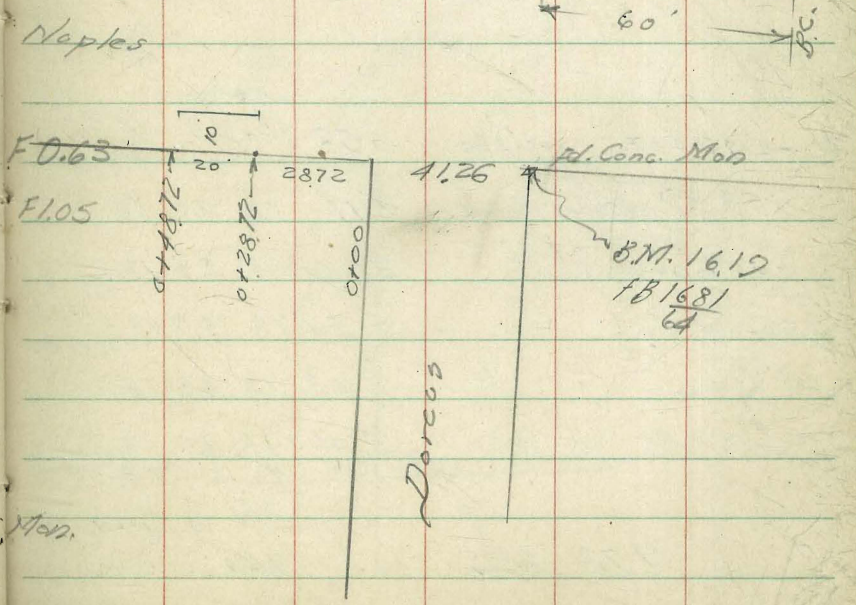 60'
B.C.
Naples
10'
F 0.63
20'
28.72
41.26
Fd. Conc. Mon
F 1.05
0+48.72
0+28.72
0+00
B.M. 16.19
FB 1681
64
Dorcus
Mon.